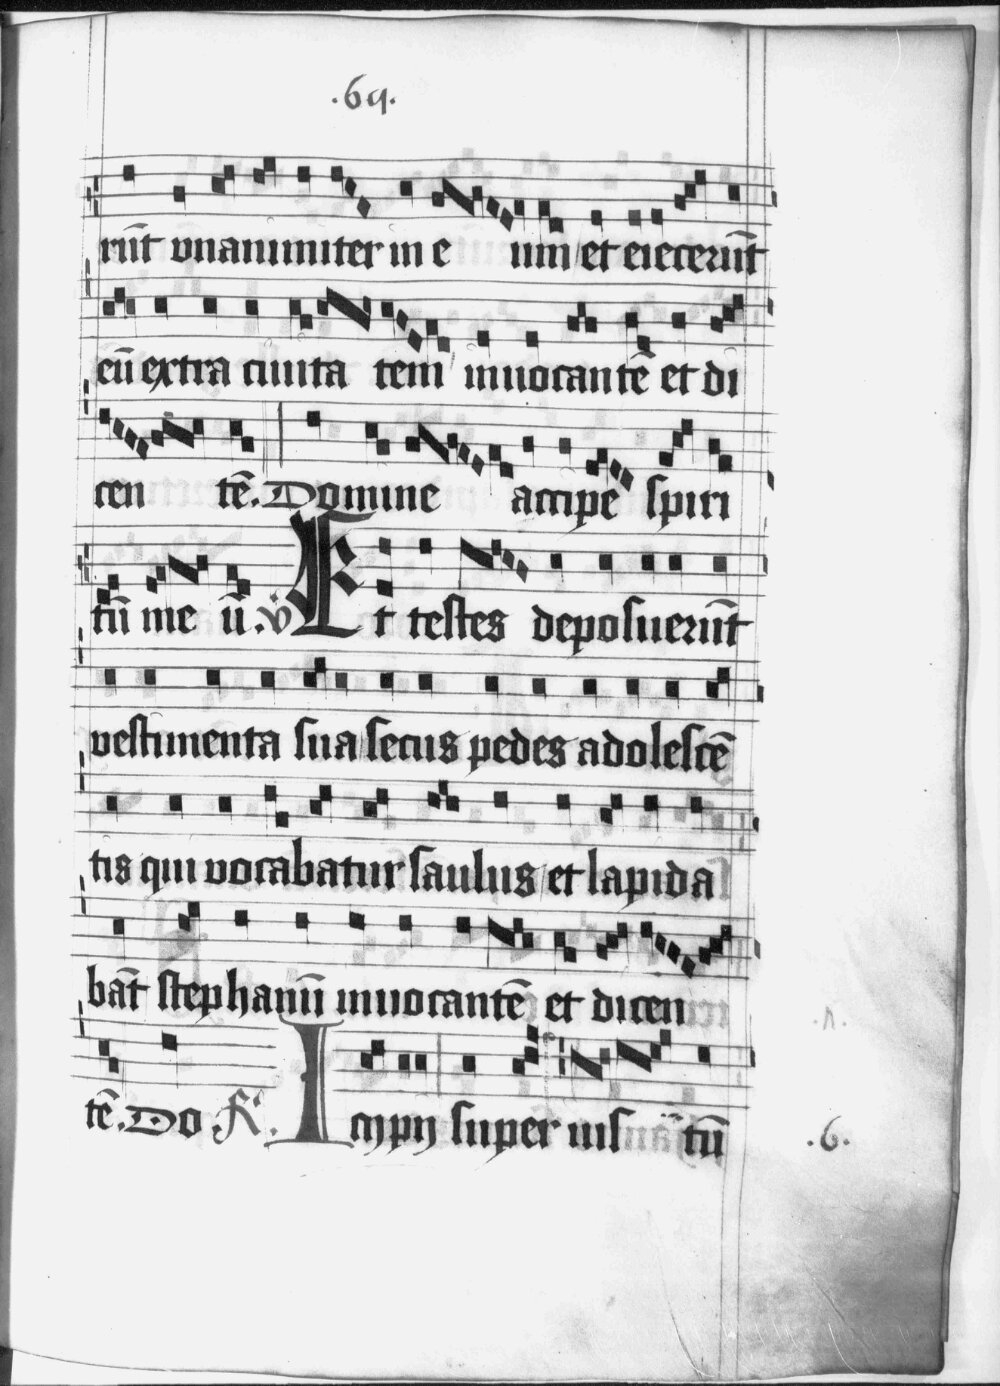 .69.
rūt vnanimiter in e um et eiecerūt
eū extra ciuita tem inuocantē et di
cen tē. Domine accipe spiri
tū me ū. ℣ Et testes deposuerūt
vestimenta sua secus pedes adolescē
tis qui vocabatur saulus et lapida
bāt stephanū inuocantē et dicen
tē. Do ℟. Impij super iustū
.6.